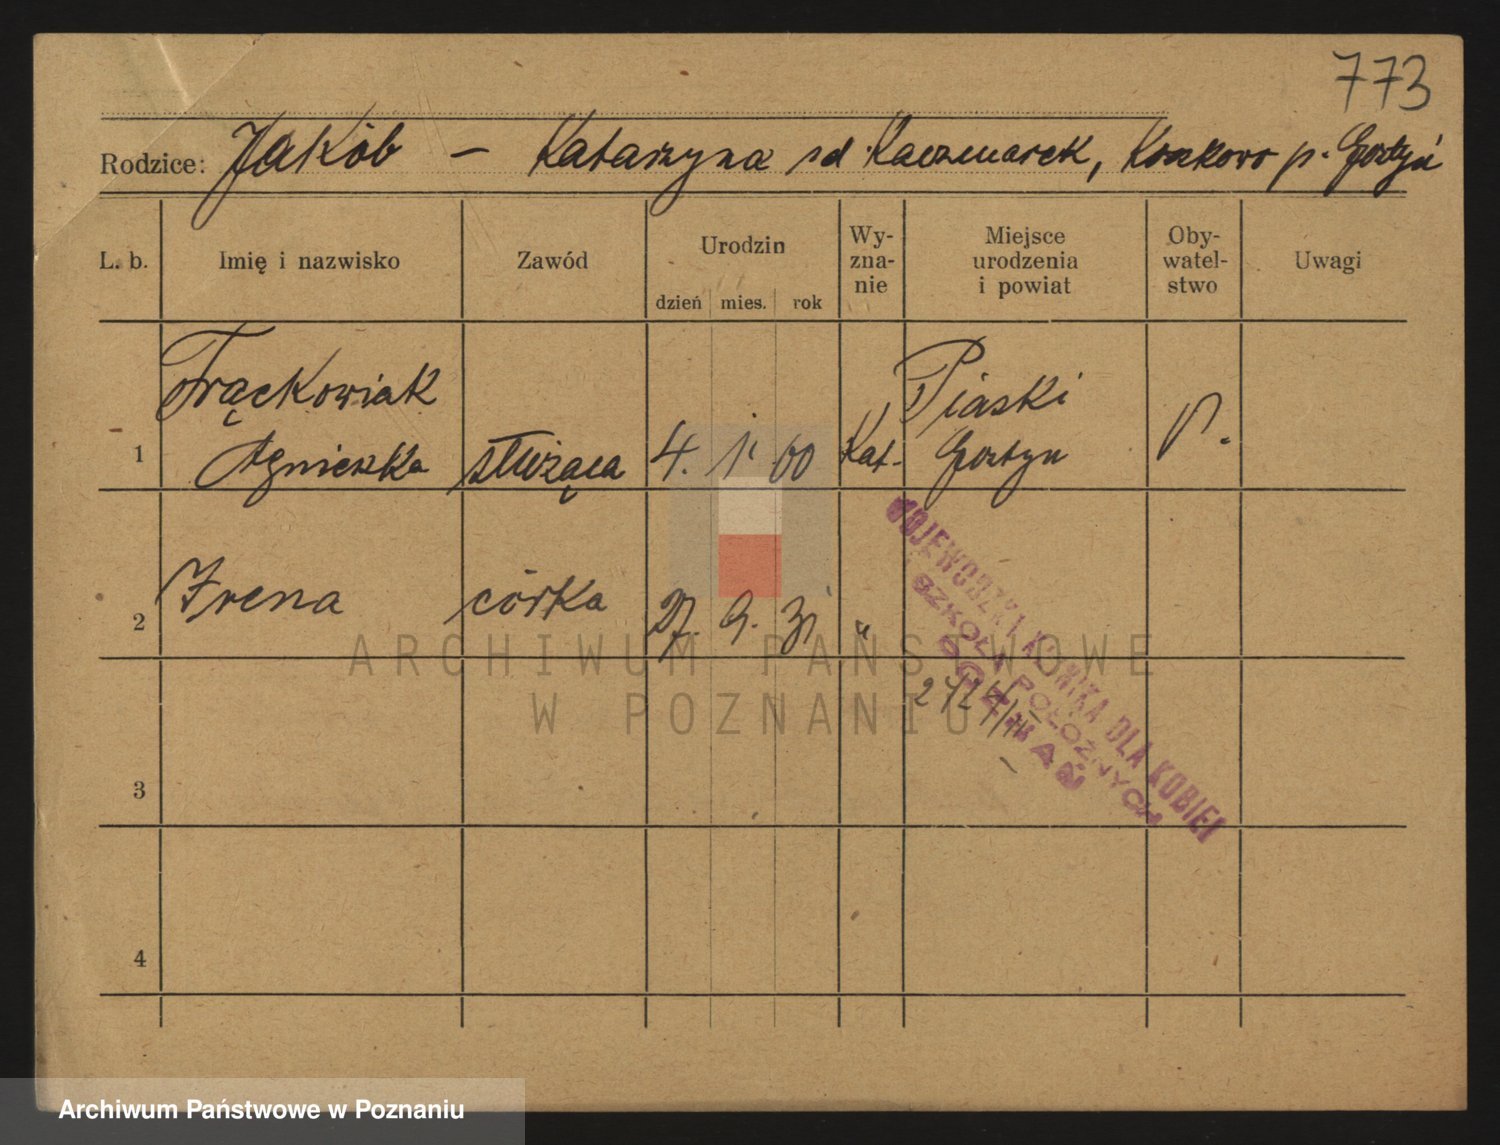 773
Rodzice: Jakób – Katarzyna sd Kaczmarek, p. Gostyń
L. b.
Imię i nazwisko
Zawód
Urodzin
dzień mies. rok
Wy-
zna-
nie
Miejsce
urodzenia
i powiat
Oby-
watel-
stwo
Uwagi
Frąckowiak Piaski
1 Agnieszka służąca 4. 1. 00 Kat. Gostyn P.
2 Irena córka 27. 9. 31 "
WOJEWÓDZKA KLINIKA DLA KOBIET
I SZKOŁA POŁOŻNYCH
POZNAŃ
3
4
ARCHIWUM PAŃSTWOWE
W POZNANIU
Archiwum Państwowe w Poznaniu